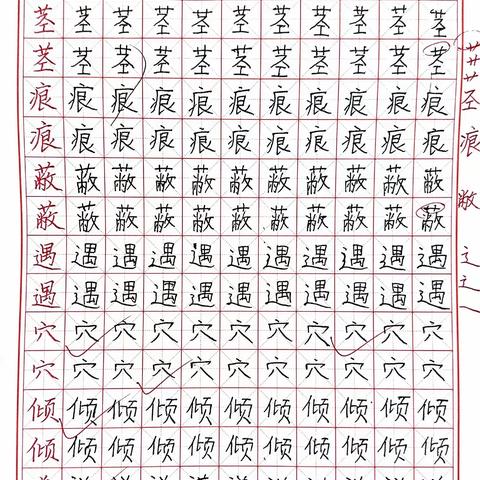 茎茎茎茎茎茎茎茎茎茎茎
茎茎茎茎茎茎茎茎茎茎茎
痕痕痕痕痕痕痕痕痕痕痕
痕痕痕痕痕痕痕痕痕痕痕 痕
蔽蔽蔽蔽蔽蔽蔽蔽蔽蔽蔽
蔽蔽蔽蔽蔽蔽蔽蔽蔽蔽蔽 敝
遇遇遇遇遇遇遇遇遇遇遇
遇遇遇遇遇遇遇遇遇遇遇
穴穴穴穴穴穴穴穴穴穴穴
穴穴穴穴穴穴穴穴穴穴穴
倾倾倾倾倾倾倾倾倾倾倾
倾倾倾倾倾倾倾倾倾倾倾